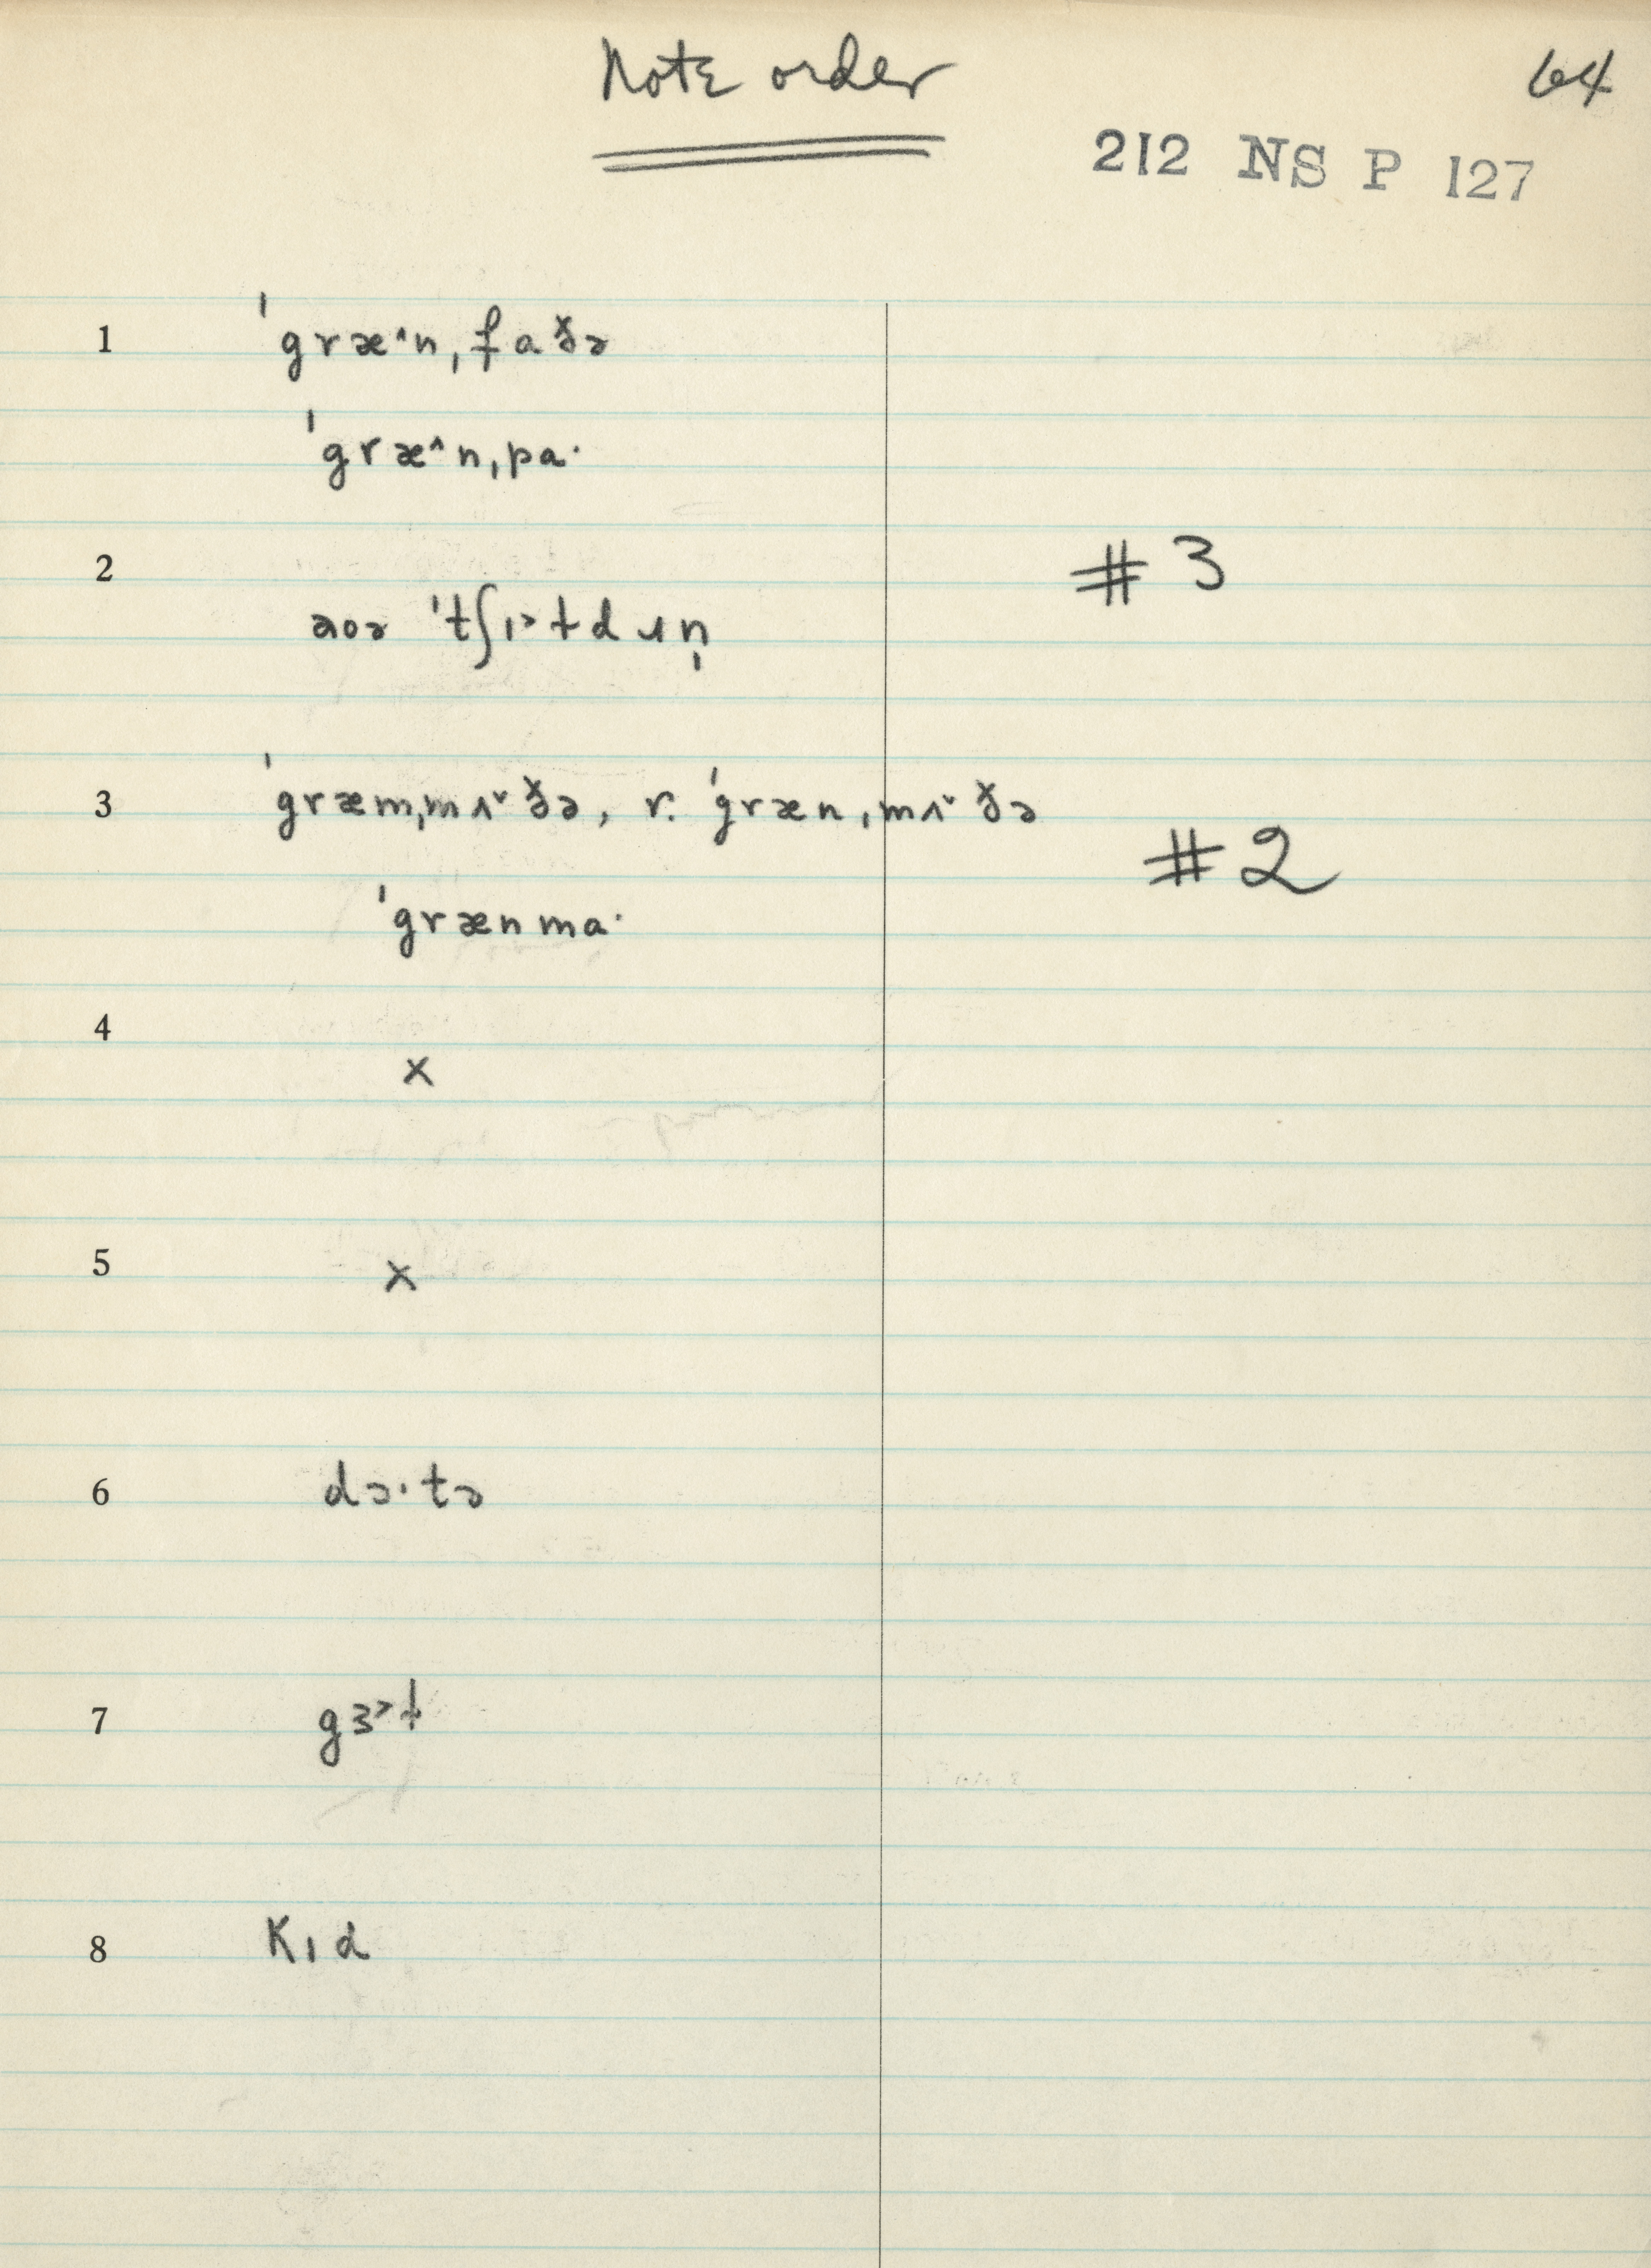 Note order
64
212 NS P 127
1 ˈgræ^n,faðə
ˈgræ^n,pa·
2 #3
aoə ˈtʃɪ>ɫdɹn̩
3 ˈgræm,mʌ˅ðə, r. ˈgræn,mʌ˅ðə
#2
ˈgrænma·
4
x
5 x
6 dɔ·tə
7 gɜ>ɫ
8 Kɪd